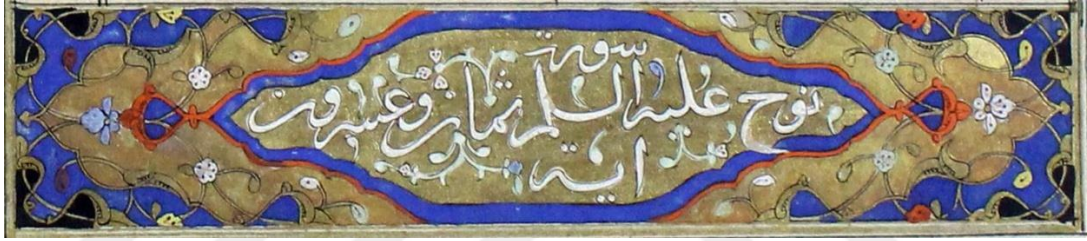 سورة
نوح عليه السلام ثمان وعشرون
اية